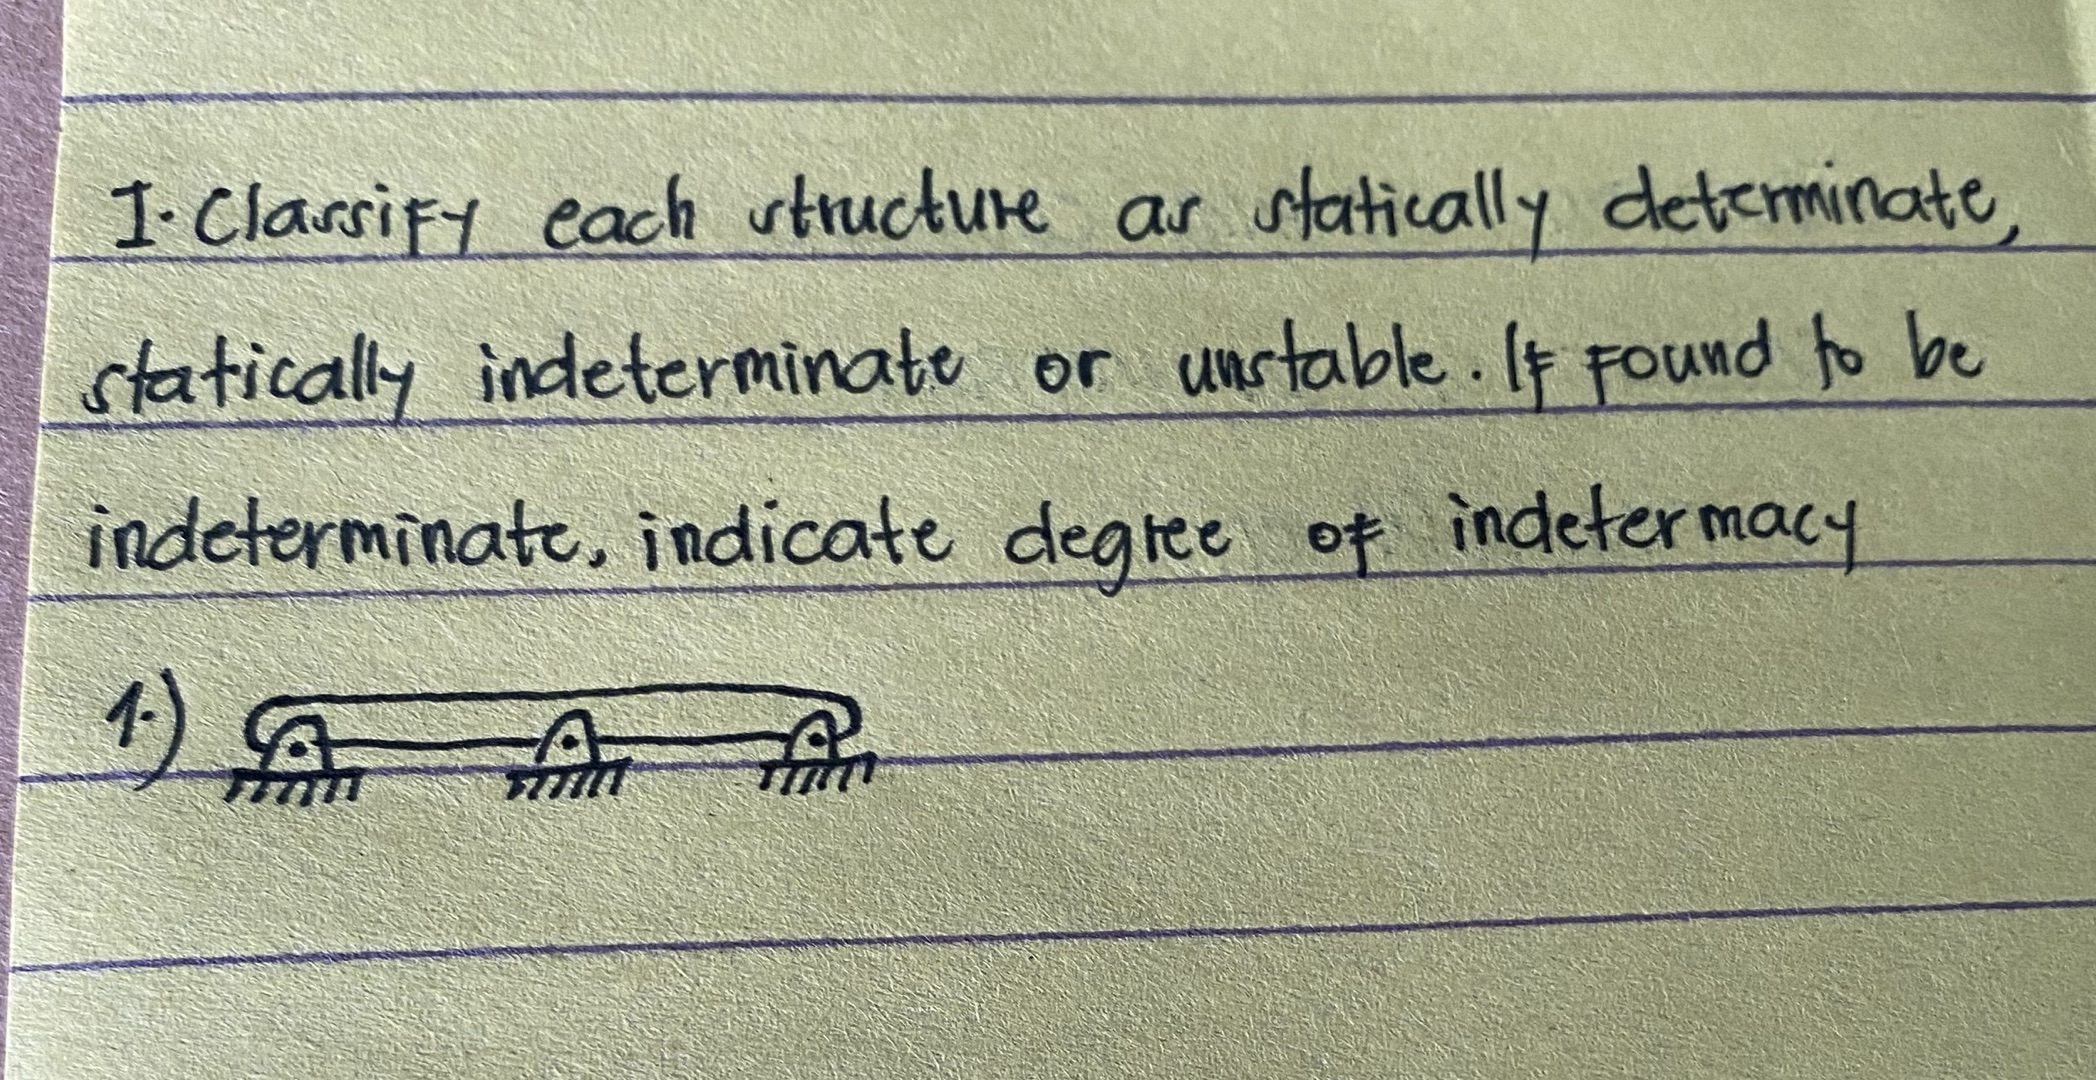 I. Classify each structure as statically determinate,
statically indeterminate or unstable. If found to be
indeterminate, indicate degree of indetermacy
1.)